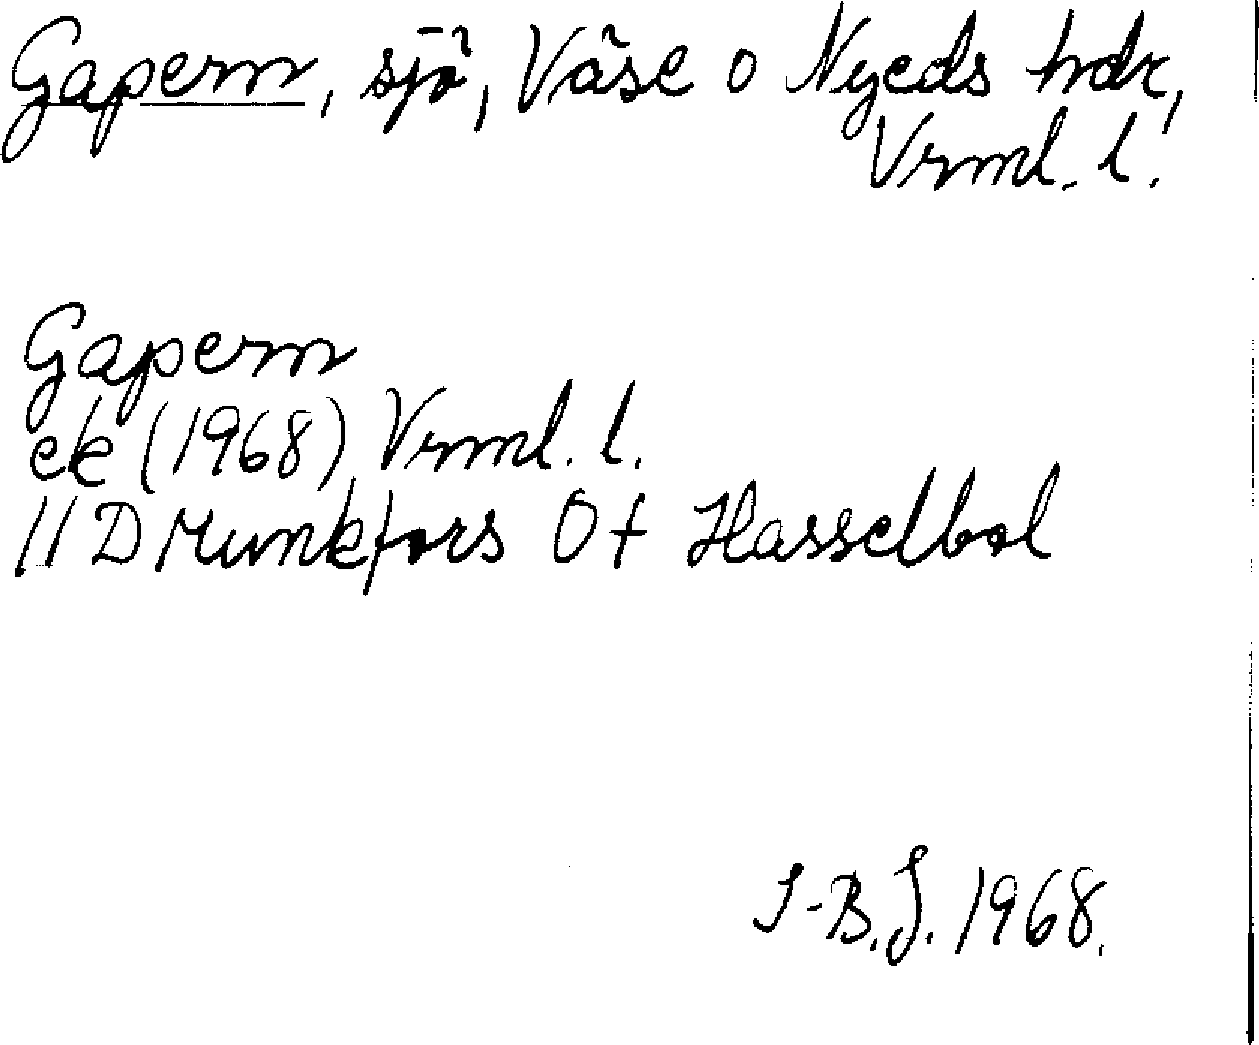 Gapern, sjö, Väse o Nyeds hdr,
Vrml. l.
Gapern
ek (1968) Vrml. l.
11D Munkfors Ö+ Hasselbol
I-B.J. 1968.